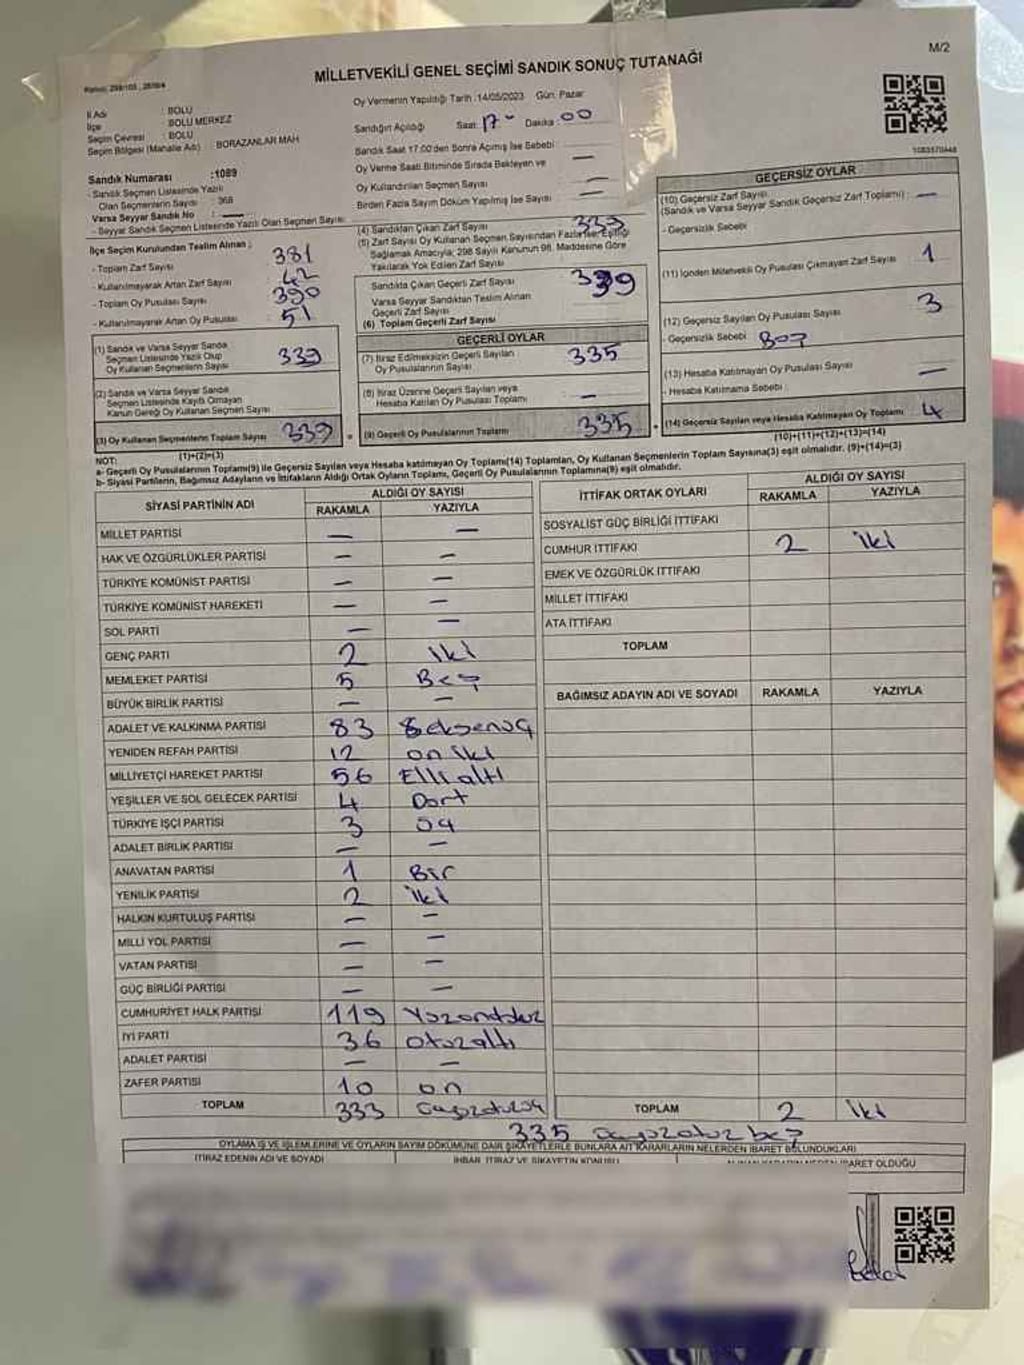 M/2
MİLLETVEKİLİ GENEL SEÇİMİ SANDIK SONUÇ TUTANAĞI
İl Adı : BOLU
İlçe : BOLU MERKEZ
Seçim Çevresi : BOLU
Seçim Bölgesi (Mahalle Adı) : BORAZANLAR MAH
Sandık Numarası :1089
- Sandık Seçmen Listesinde Yazılı
Olan Seçmenlerin Sayısı : 368
Varsa Seyyar Sandık No : —
- Seyyar Sandık Seçmen Listesinde Yazılı Olan Seçmen Sayısı:
Oy Vermenin Yapıldığı Tarih :14/05/2023 Gün: Pazar
Sandığın Açıldığı Saat: 17 - Dakika: 00
Sandık Saat 17:00'den Sonra Açılmış İse Sebebi
Oy Verme Saati Bitiminde Sırada Bekleyen ve
Oy Kullandırılan Seçmen Sayısı —
Birden Fazla Sayım Döküm Yapılmış İse Sayısı —
İlçe Seçim Kurulundan Teslim Alınan ;
- Toplam Zarf Sayısı 381
- Kullanılmayarak Artan Zarf Sayısı 42
- Toplam Oy Pusulası Sayısı 390
- Kullanılmayarak Artan Oy Pusulası 51
(1) Sandık ve Varsa Seyyar Sandık
Seçmen Listesinde Yazılı Olup
Oy Kullanan Seçmenlerin Sayısı 339
(2) Sandık ve Varsa Seyyar Sandık
Seçmen Listesinde Kayıtlı Olmayan
Kanun Gereği Oy Kullanan Seçmen Sayısı
(3) Oy Kullanan Seçmenlerin Toplam Sayısı 339
(1)+(2)=(3)
(4) Sandıktan Çıkan Zarf Sayısı
(5) Zarf Sayısı Oy Kullanan Seçmen Sayısından Fazla ise, Eşitliği
Sağlamak Amacıyla; 298 Sayılı Kanunun 98. Maddesine Göre
Yakılarak Yok Edilen Zarf Sayısı
Sandıkta Çıkan Geçerli Zarf Sayısı 339
Varsa Seyyar Sandıktan Teslim Alınan
Geçerli Zarf Sayısı
(6) Toplam Geçerli Zarf Sayısı
GEÇERLİ OYLAR
(7) İtiraz Edilmeksizin Geçerli Sayılan
Oy Pusulalarının Sayısı 335
(8) İtiraz Üzerine Geçerli Sayılan veya
Hesaba Katılan Oy Pusulası Toplamı —
(9) Geçerli Oy Pusulalarının Toplamı 335
1083570448
GEÇERSİZ OYLAR
(10) Geçersiz Zarf Sayısı
(Sandık ve Varsa Seyyar Sandık Geçersiz Zarf Toplamı) : —
- Geçersizlik Sebebi
(11) İçinden Milletvekili Oy Pusulası Çıkmayan Zarf Sayısı 1
(12) Geçersiz Sayılan Oy Pusulası Sayısı 3
- Geçersizlik Sebebi Boş
(13) Hesaba Katılmayan Oy Pusulası Sayısı —
- Hesaba Katılmama Sebebi :
(14) Geçersiz Sayılan veya Hesaba Katılmayan Oy Toplamı 4
(10)+(11)+(12)+(13)=(14)
NOT:
a- Geçerli Oy Pusulalarının Toplamı(9) ile Geçersiz Sayılan veya Hesaba katılmayan Oy Toplamı(14) Toplamları, Oy Kullanan Seçmenlerin Toplam Sayısına(3) eşit olmalıdır. (9)+(14)=(3)
b- Siyasi Partilerin, Bağımsız Adayların ve İttifakların Aldığı Ortak Oyların Toplamı, Geçerli Oy Pusulalarının Toplamına(9) eşit olmalıdır.
SİYASİ PARTİNİN ADI ALDIĞI OY SAYISI
RAKAMLA YAZIYLA
MİLLET PARTİSİ — —
HAK VE ÖZGÜRLÜKLER PARTİSİ — —
TÜRKİYE KOMÜNİST PARTİSİ — —
TÜRKİYE KOMÜNİST HAREKETİ — —
SOL PARTİ — —
GENÇ PARTİ 2 iki
MEMLEKET PARTİSİ 5 Beş
BÜYÜK BİRLİK PARTİSİ — —
ADALET VE KALKINMA PARTİSİ 83 Seksenüç
YENİDEN REFAH PARTİSİ 12 on iki
MİLLİYETÇİ HAREKET PARTİSİ 56 Elli altı
YEŞİLLER VE SOL GELECEK PARTİSİ 4 Dört
TÜRKİYE İŞÇİ PARTİSİ 3 üç
ADALET BİRLİK PARTİSİ — —
ANAVATAN PARTİSİ 1 Bir
YENİLİK PARTİSİ 2 iki
HALKIN KURTULUŞ PARTİSİ — —
MİLLİ YOL PARTİSİ — —
VATAN PARTİSİ — —
GÜÇ BİRLİĞİ PARTİSİ — —
CUMHURİYET HALK PARTİSİ 119 Yüzondokuz
İYİ PARTİ 36 Otuzaltı
ADALET PARTİSİ — —
ZAFER PARTİSİ 10 on
TOPLAM 333 üçyüzotuzüç
İTTİFAK ORTAK OYLARI ALDIĞI OY SAYISI
RAKAMLA YAZIYLA
SOSYALİST GÜÇ BİRLİĞİ İTTİFAKI
CUMHUR İTTİFAKI 2 iki
EMEK VE ÖZGÜRLÜK İTTİFAKI
MİLLET İTTİFAKI
ATA İTTİFAKI
TOPLAM
BAĞIMSIZ ADAYIN ADI VE SOYADI RAKAMLA YAZIYLA
TOPLAM 2 iki
335 üçyüzotuzbeş
OYLAMA İŞ VE İŞLEMLERİNE VE OYLARIN SAYIM DÖKÜMÜNE DAİR ŞİKAYETLERLE BUNLARA AİT KARARLARIN NELERDEN İBARET BULUNDUKLARI
İTİRAZ EDENİN ADI VE SOYADI İHBAR, İTİRAZ VE ŞİKAYETİN KONUSU İBARET OLDUĞU